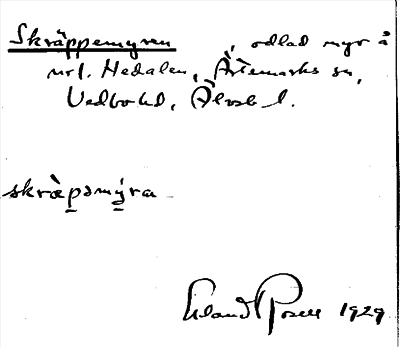 Skräppemyren, odlad myr å
utj. Hedalen, Ärtemarks sn,
Vedbo hd, Älvsb l.
skræ̀pəmýra
Erland Rosell 1929